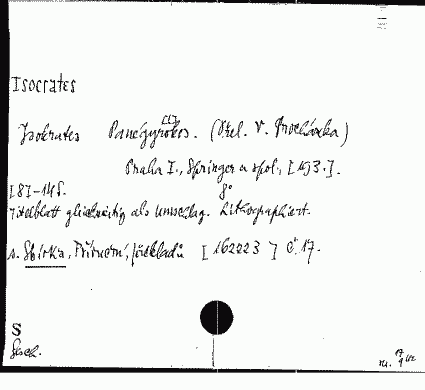 Isocrates
Isokrates Panegyrikos. (Přel. V. Procházka)
Praha I., Springer a spol., [193.].
[8]-145. 8°
Titelblatt gleichzeitig als Umschlag. Lithographiert.
s. Sbírka, Příruční, překladů [162223] č. 17.
S
Gesch.